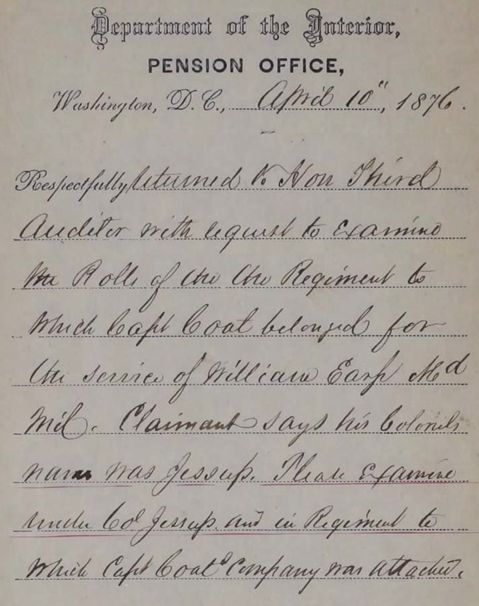 Department of the Interior,
PENSION OFFICE,
Washington, D.C., April 10", 1876.
Respectfully returned to Hon Third
Auditor with request to Examine
the Rolls of the the Regiment to
which Capt Coat belonged for
the service of William Earp Md
Mil. Claimant says his Colonels
name was Jessup. Please Examine
under Col Jessup and in Regiment to
which Capt Coats Company was attached.